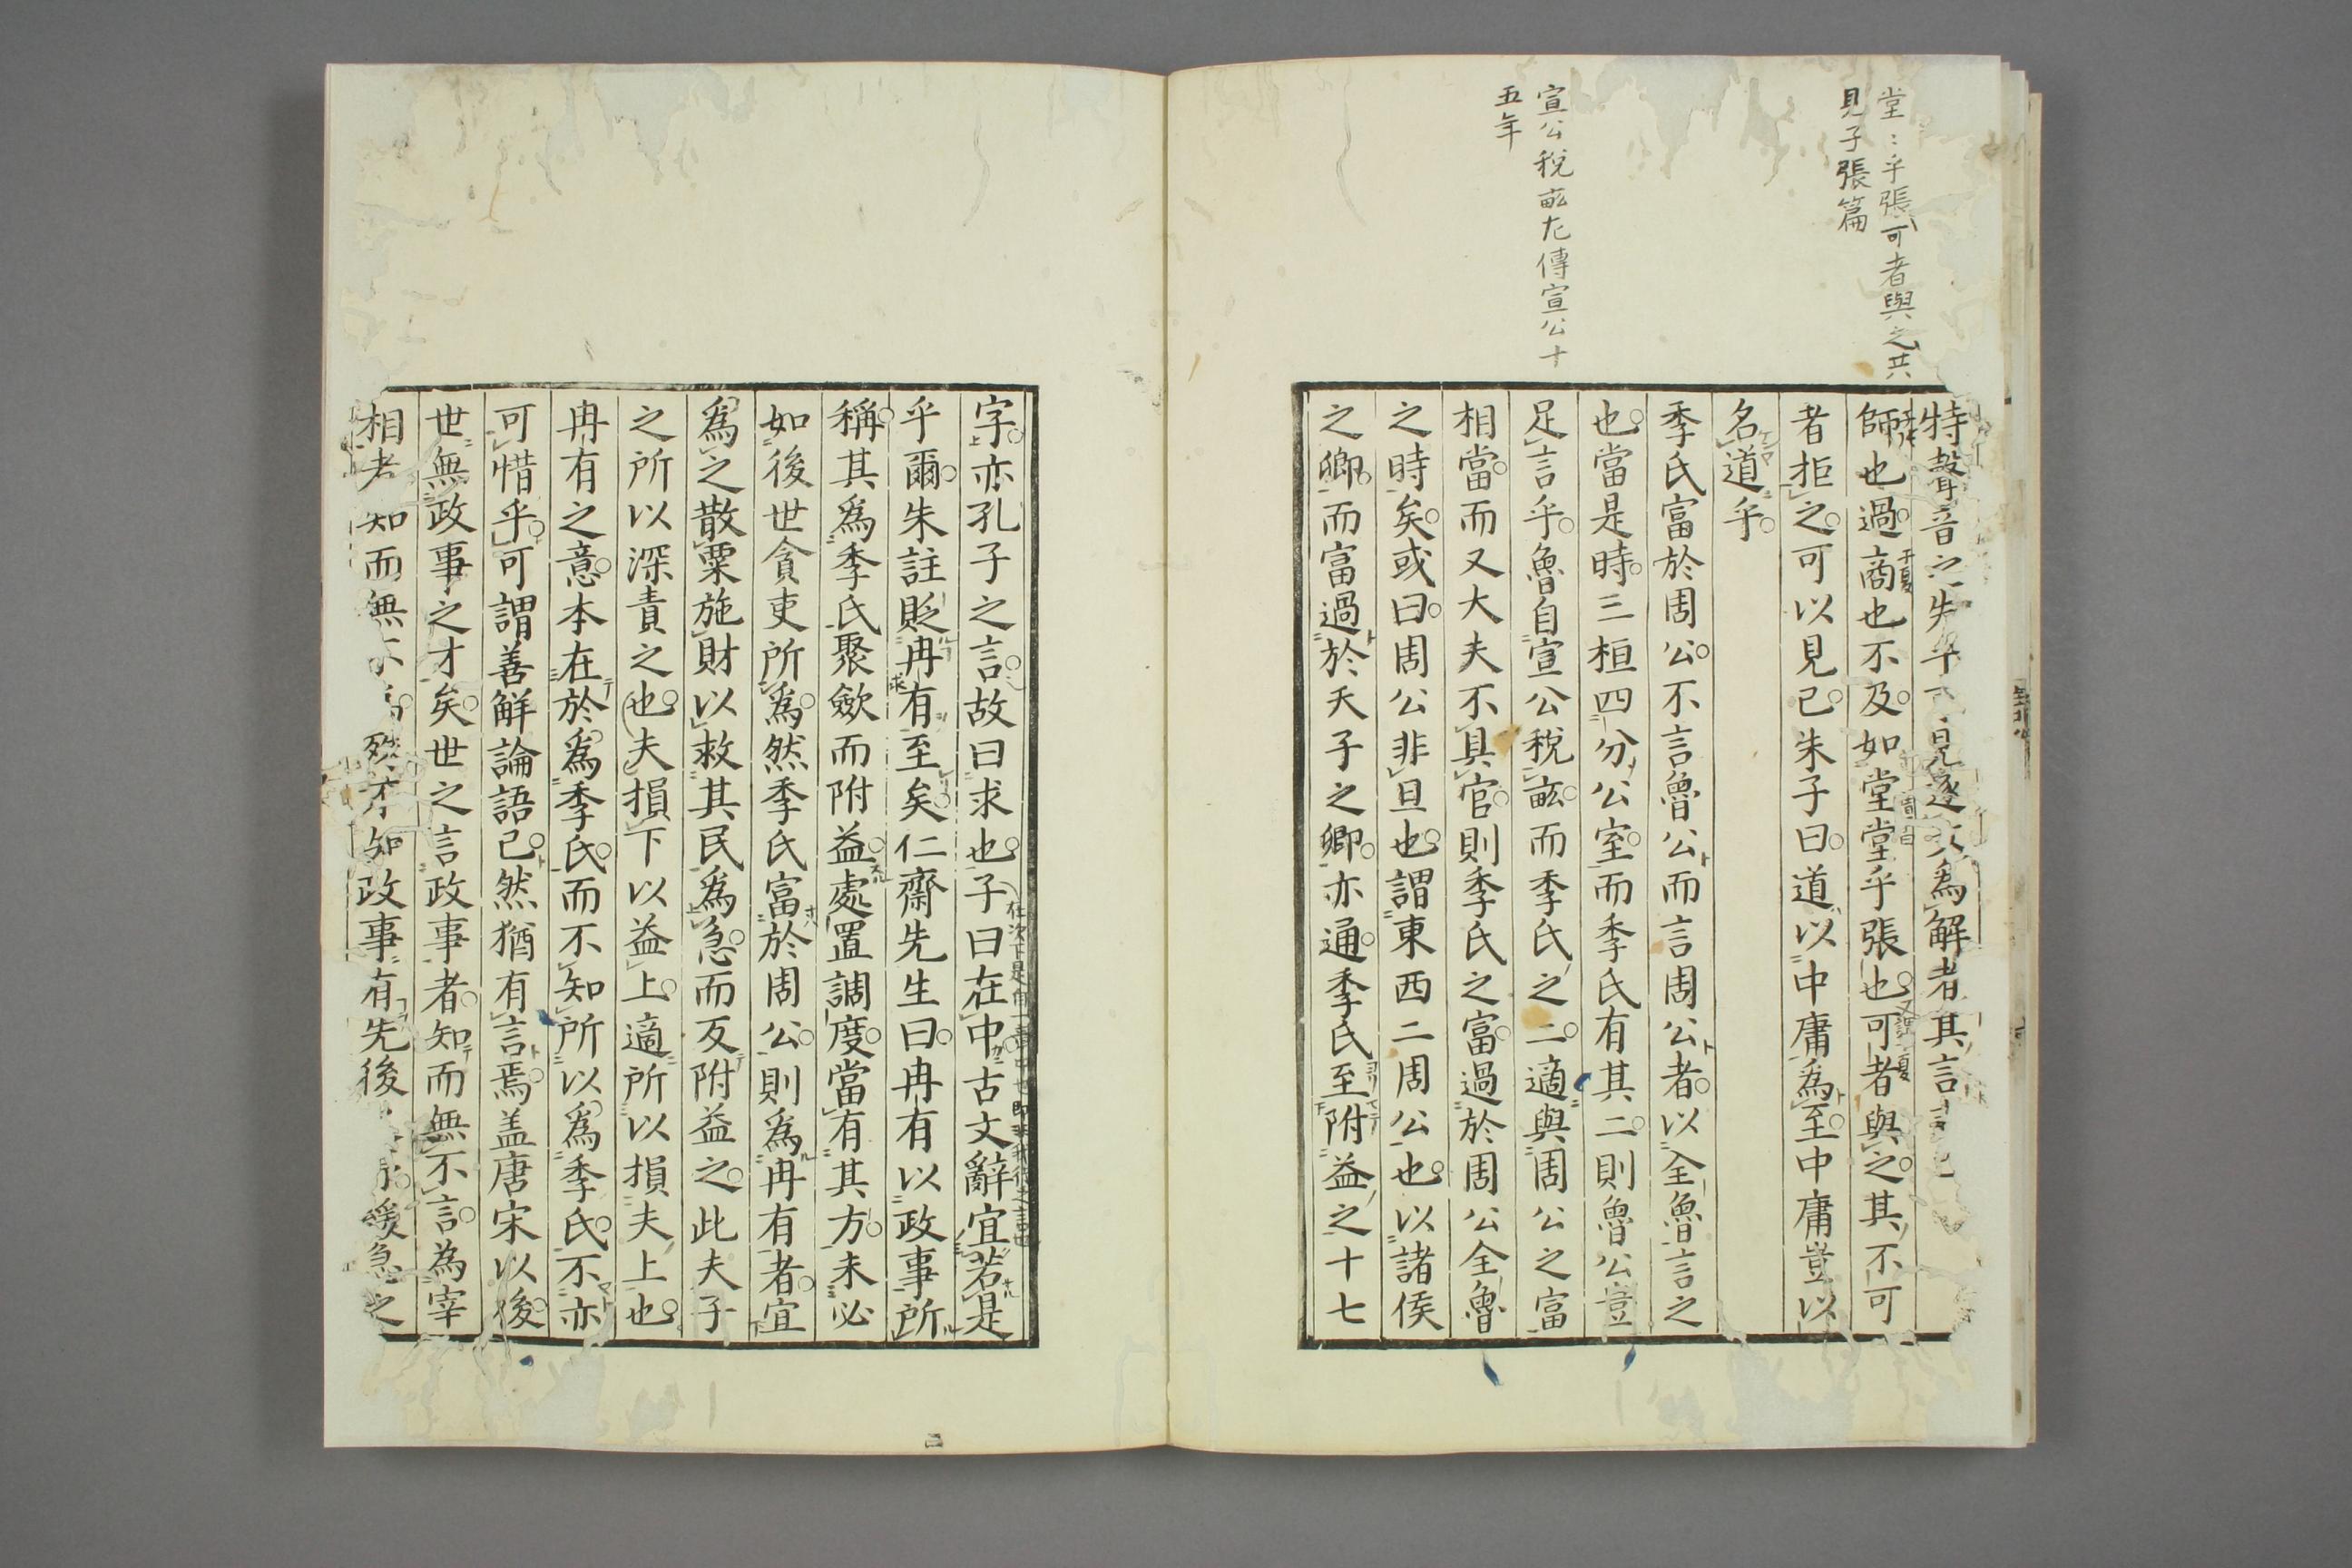 堂〻乎張可者與之共
見子張篇
宣公税畝左傳宣公十
五年
特聲音之失 爲解者其言
師也過商也不及如堂堂乎張也可者與之其不可
者拒之可以見已朱子曰道以中庸爲至中庸豈以
名道乎
季氏富於周公不言魯公而言周公者以全魯言之
也當是時三桓四分公室而季氏有其二則魯公豈
足言乎魯自宣公税畝而季氏之二適與周公之富
相當而又大夫不具官則季氏之富過於周公全魯
之時矣或曰周公非旦也謂東西二周公也以諸侯
之卿而富過於天子之卿亦通季氏至附益之十七
字亦孔子之言故曰求也子曰在中古文辭宜若是
乎爾朱註貶冉有至矣仁齋先生曰冉有以政事所
稱其爲季氏聚斂而附益處置調度當有其方未必
如後世貪吏所爲然季氏富於周公則爲冉有者宜
爲之散粟施財以救其民爲急而反附益之此夫子
之所以深責之也夫損下以益上適所以損夫上也
冉有之意本在於爲季氏而不知所以爲季氏不亦
可惜乎可謂善解論語已然猶有言焉盖唐宋以後
世無政事之才矣世之言政事者知而無不言為宰
相者知而無 政事有先後 緩急之